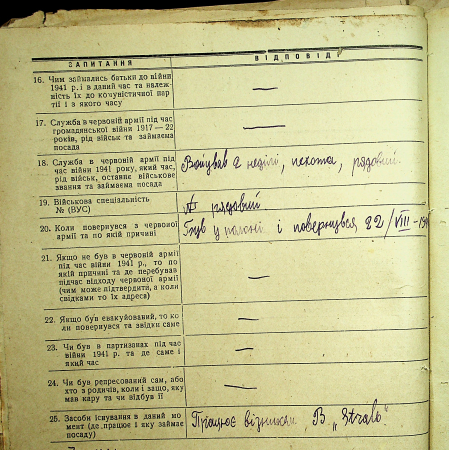 ЗАПИТАННЯ
ВІДПОВІДІ
16. Чим займались батьки до війни
1941 р. і в даний час та належ-
ність їх до комуністичної пар-
тії і з якого часу
—
17. Служба в червоній армії під час
громадянської війни 1917—22
років, рід військ та займаєма
посада
—
18. Служба в червоній армії під
час війни 1941 року, який час,
рід військ, останнє військове
звання та займаєма посада
Воював 2 неділі, пехота, рядовий.
19. Військова спеціальність
№ (ВУС)
рядовий
20. Коли повернувся з червоної
армії та по якій причині
Був у полоні і повернувся 22/VIII-194
21. Якщо не був в червоній армії
під час війни 1941 р., то по
якій причині та де перебував
підчас відходу червоної армії
(чим може підтвердити, а коли
свідками то їх адреса)
—
22. Якщо був евакуйований, то ко-
ли повернувся та звідки саме
—
23. Чи був в партизанах під час
війни 1941 р. та де саме і
який час
—
24. Чи був репресований сам, або
хто з родичів, коли і защо, яку
мав кару та чи відбув її
—
25. Засоби існування в даний мо-
мент (де працює і яку займає
посаду)
Працює візником, В „Strabo"